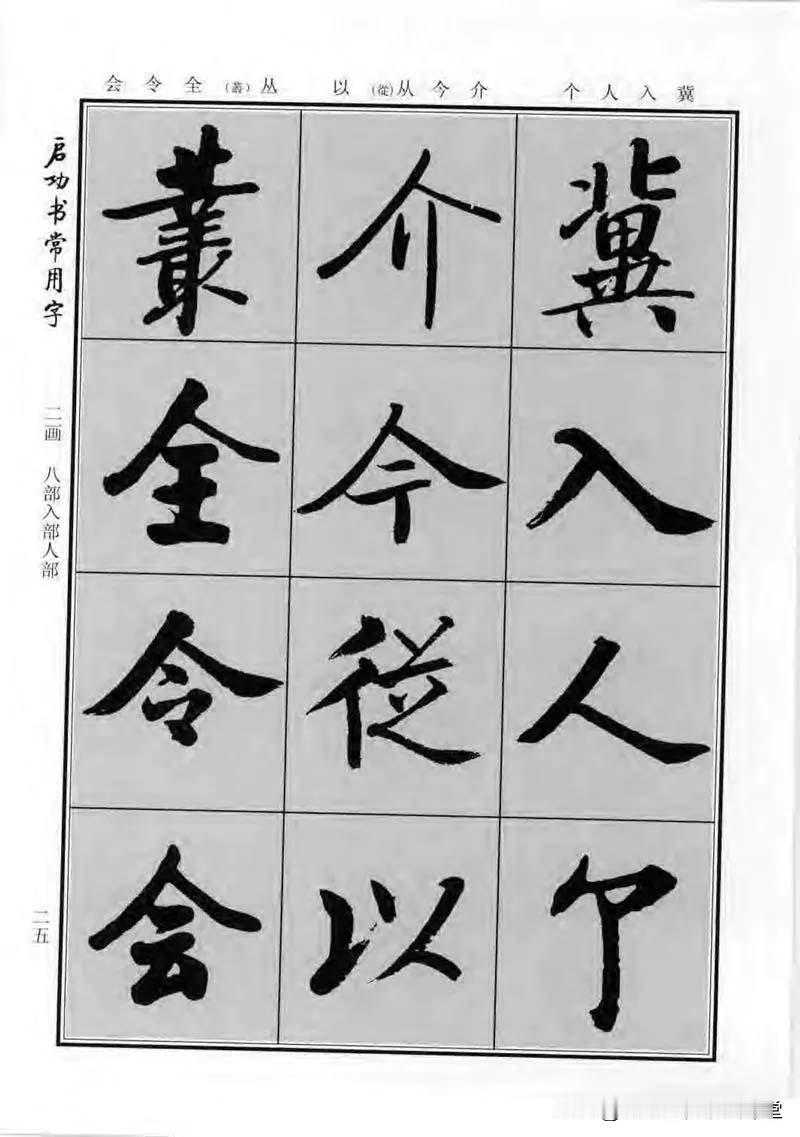 冀入人个 介今从(從)以 丛(叢)全令会
冀入人个
介今從以
叢全令会
启功书常用字
二画 八部入部人部
二五